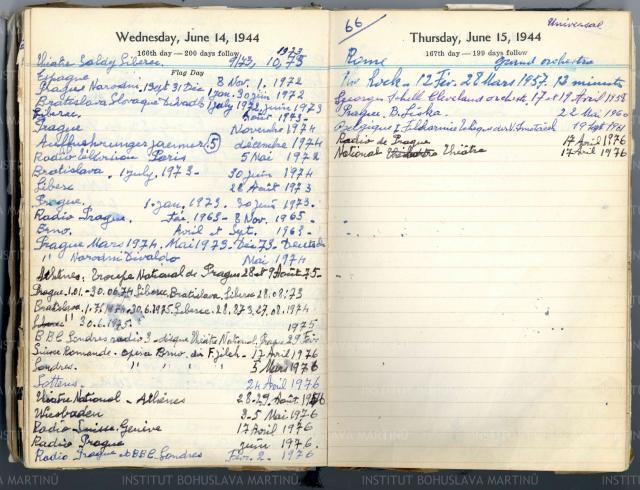 Wednesday, June 14, 1944
166th day — 200 days follow
1973
Théâtre Saldy Liberec. 9/73, 10,73
Flag Day
Espagne. 8 Nov. 1. 1972
Prague Narodni 1 Sept 31 Déc 1 jan. 30 juin 1972
Bratislava Slovaque Divadlo 1 july 1972, juin 1973
Liberec. Août 1973-
Prague Novembre 1974
5 décembre 1974
Radio télévision Paris 5 Mai 1972
Bratislava. 1 july 1973- 30 juin 1974
Liberec 28 Août 1973
Prague. 1. jan. 1973. 30 juin 1973.
Radio Prague. Fév. 1963- 8 Nov. 1965-
Brno. Avril et Sept. 1963-
Prague Mars 1974. Mai 1973. Déc 73-
" Narodni Divadlo Mai 1974
Athènes, Troupe National de Prague 28 et 9 Août 75-
Prague 1.01.-30.06.74 Liberec, Bratislava, Liberec 28.08.73
Bratislava 1.7.1974-30.6.1975. Liberec. 28.8.73, 27.08.1974
" 30.6.1975. 1975
B.B.C. Londres radio 3-disque Théâtre National, Prague 29 Fév
Suisse Romande. opera Brno. dir F. Jilek- 17 Avril 1976
Londres. " " " 5 Mars 1976
Sottens. 24 Avril 1976
Théâtre National - Athènes 28-29. Août 1976
Wiesbaden 3-5 Mai 1976
Radio Suisse. Genève 17 Avril 1976
Radio Prague juin 1976.
Radio Prague et BBC. Londres Fév. 2. 1976
66
Universal
Thursday, June 15, 1944
167th day — 199 days follow
Rome grand orchestre
The Rock. 12 Fév. 28 Mars 1957, 12 minutes
Georges Schell Cleveland orchestr, 17 et 19 Avril 1958
Prague. B. Liska. 22 Mai 1960
Belgique 19 Sept 1961
Radio de Prague 17 Avril 1976
National Théâtre 17 Avril 1976
INSTITUT BOHUSLAVA MARTINŮ